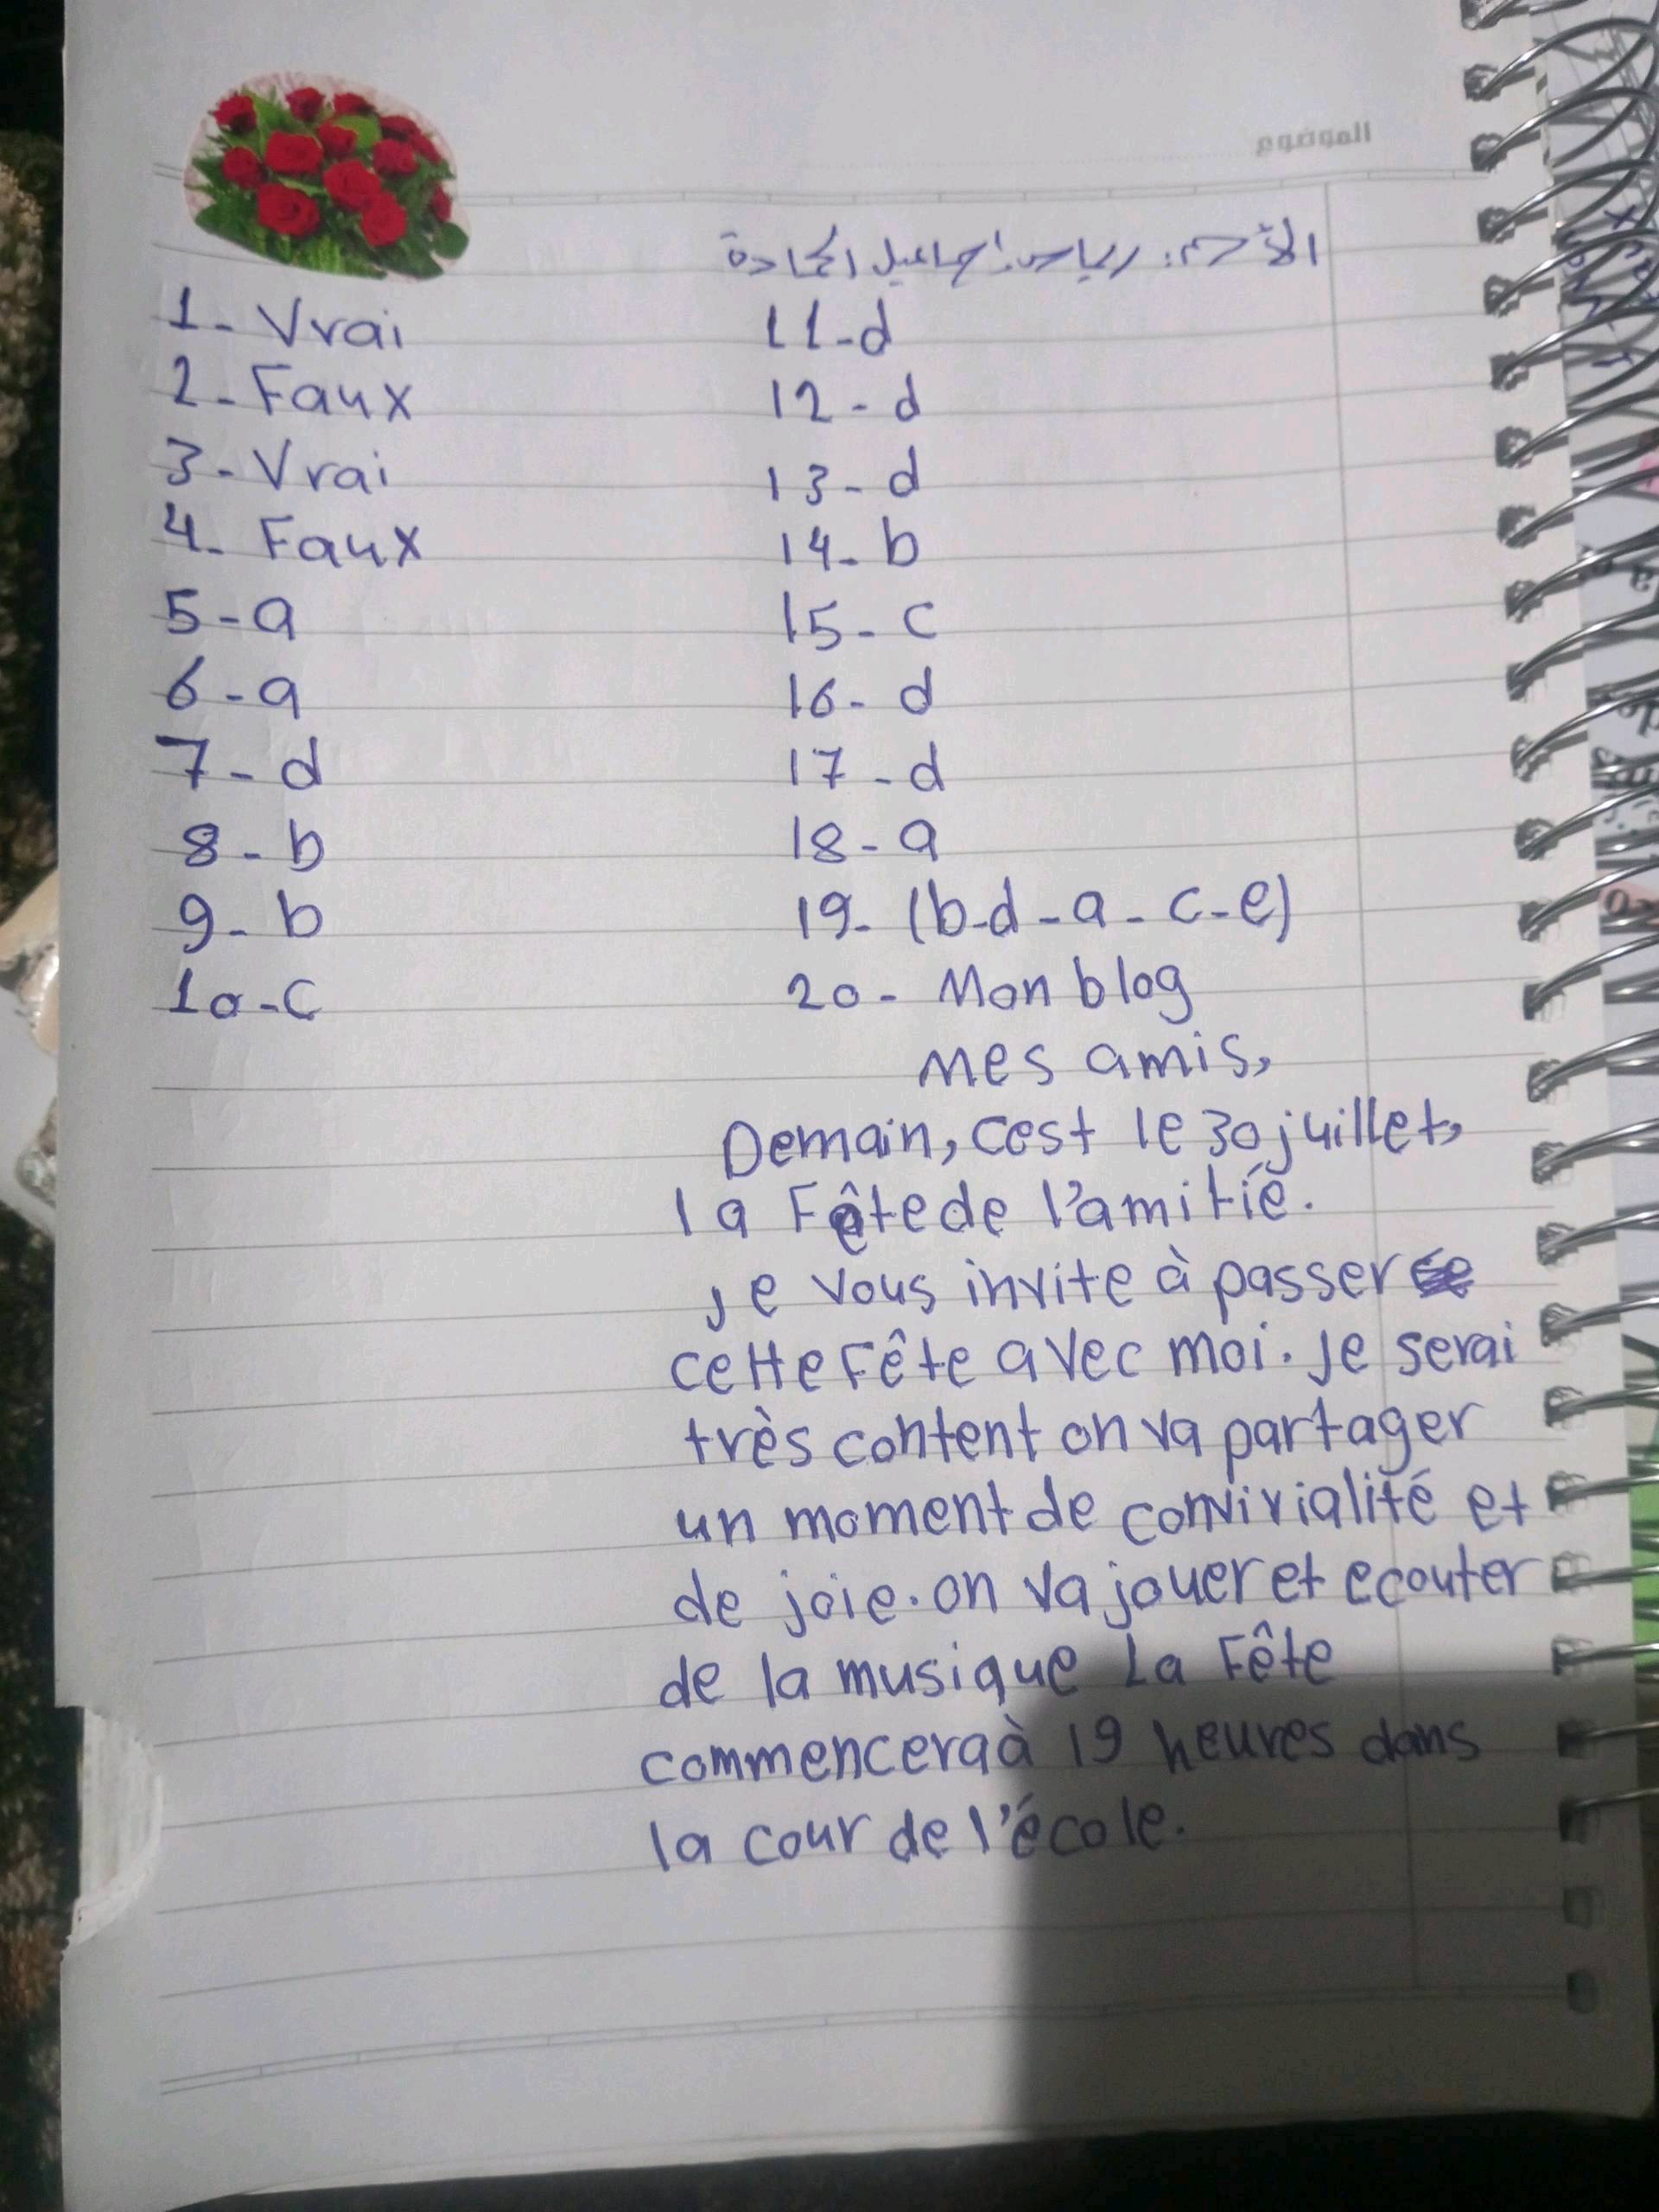 الموضوع
1- Vrai
2- Faux
3- Vrai
4- Faux
5- a
6- a
7- d
8- b
9- b
10- c
11- d
12- d
13- d
14- b
15- c
16- d
17- d
18- a
19- (b-d-a-c-e)
20- Mon blog
Mes amis,
Demain, cest le 30 juillet,
la Fête de l'amitié.
je vous invite à passer
cette Fête avec moi. Je serai
très content on va partager
un moment de convivialité et
de joie. on va jouer et ecouter
de la musique La Fête
commencera à 19 heures dans
la cour de l'école.